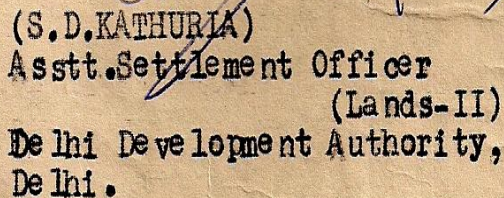 (S.D.KATHURIA)
Asstt.Settlement Officer
(Lands-II)
Delhi Development Authority,
Delhi.